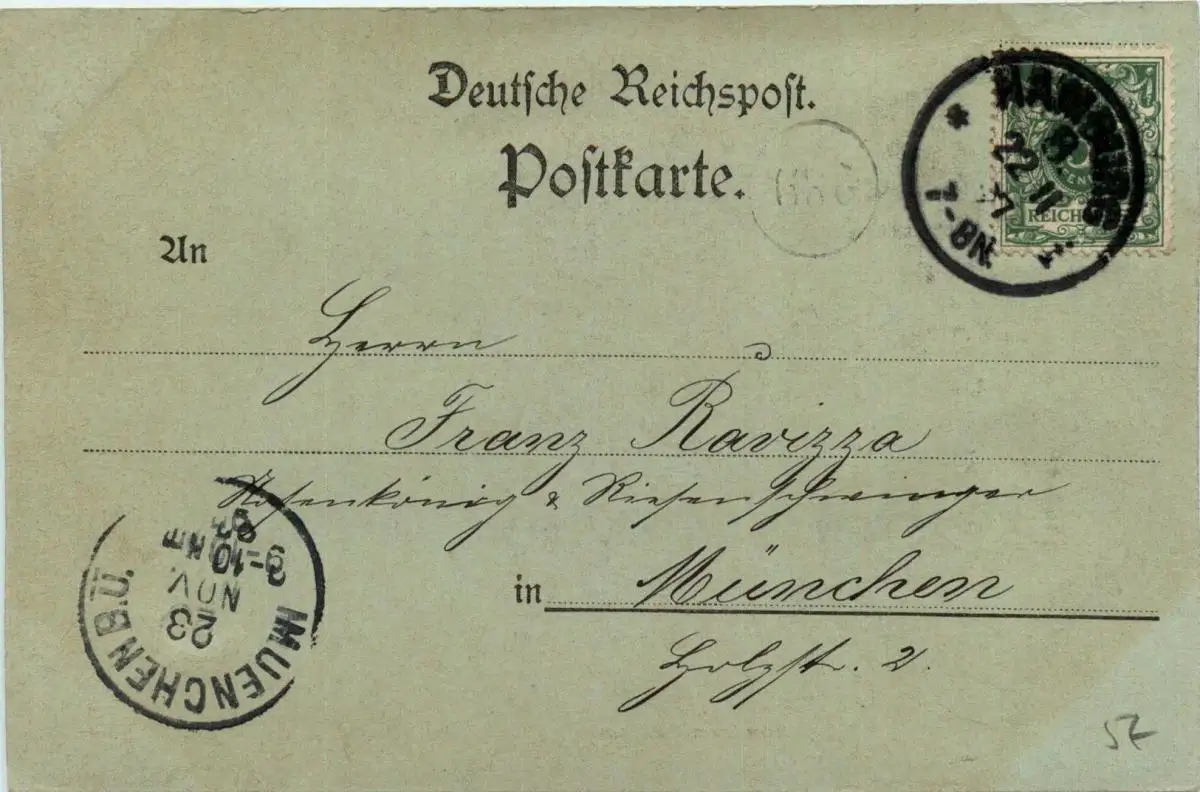 Deutsche Reichspost.
Postkarte.
HAMBURG
8.
22 11
97
7-8N.
1.
5
REICHSPOST
An
Herrn
Franz Ravizza
Rosenkönig & Riesenschwinger
in München
Holzstr. 2.
MUENCHEN B.Ü.
23
NOV.
9-10
NM
97
57